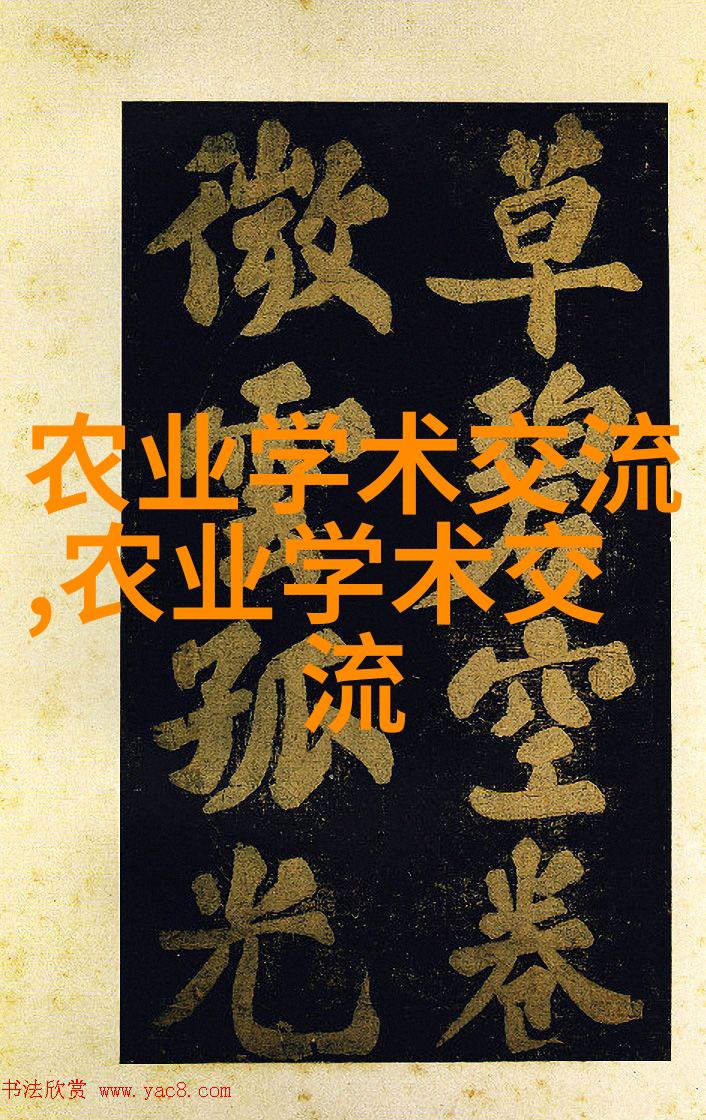 草碧空卷
微雲孤光
农业学术交流
,农业学术交
流
书法欣赏 www.yac8.com